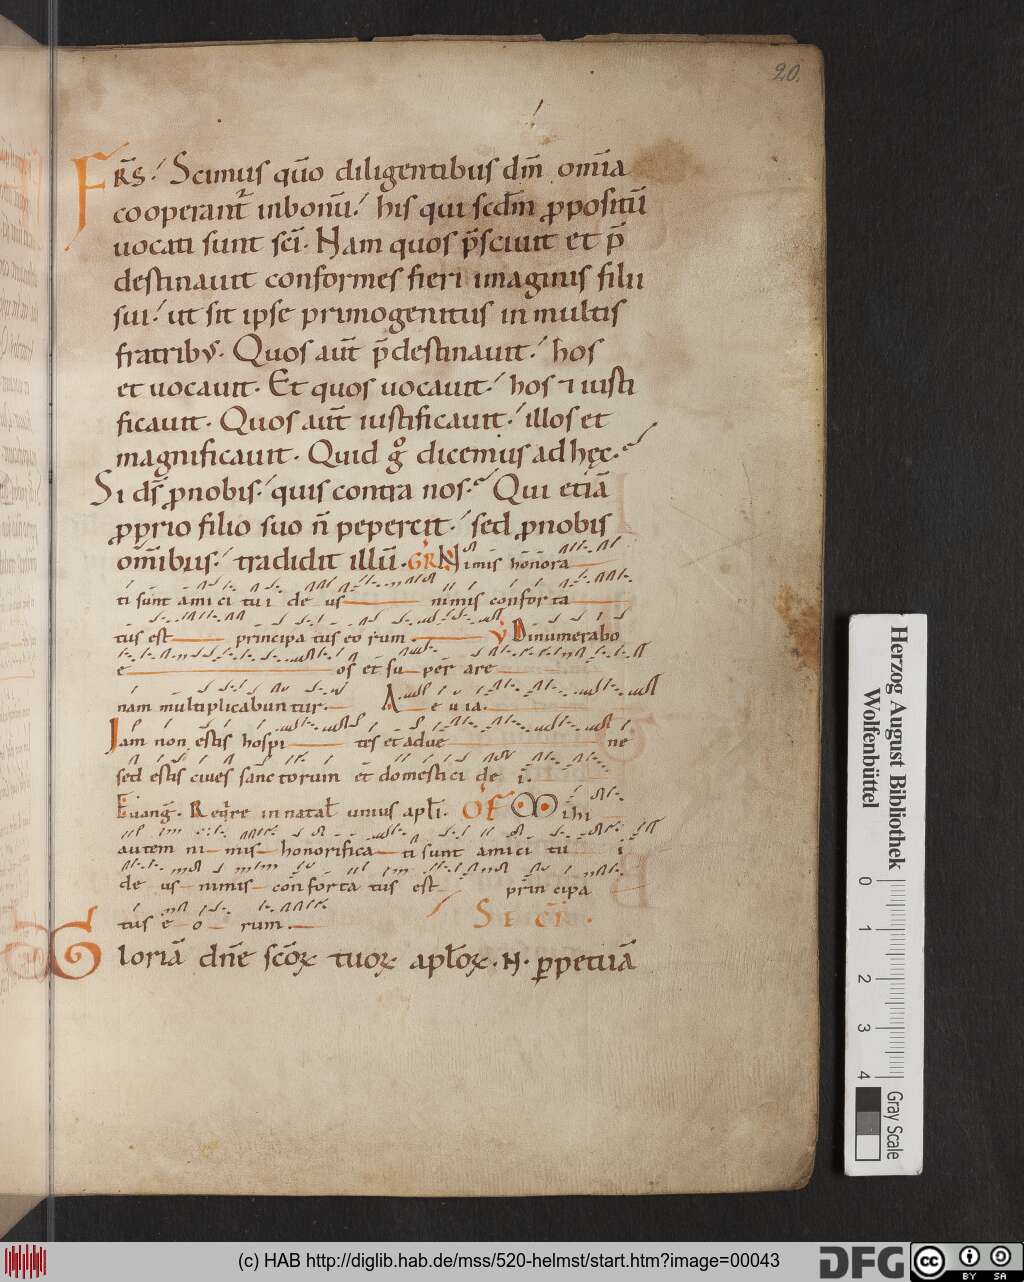 20.
FR̄S. Scimus qūo diligentibus dm̄ om̄ia
cooperant᷑ inbonū. his qui scd̄m ꝓpositū
uocati sunt sc̄i. Nam quos p̄sciuit et p̄
destinauit conformes fieri imaginis filii
sui. ut sit ipse primogenitus in multis
fratribꝰ. Quos aūt p̄destinauit. hos
et uocauit. Et quos uocauit. hos ⁊ iusti
ficauit. Quos aūt iustificauit. illos et
magnificauit. Quid gͦ dicemus ad hęc.
Si ds̄ ꝓnobis. quis contra nos. Qui etiā
ꝓprio filio suo n̄ pepercit. sed ꝓnobis
om̄ibus. tradidit illū. GR Nimis honora
ti sunt amici tui de us nimis confor ta
tus est principa tus eo rum. V Dinumerabo
e os et su per are
nam multiplicabuntur. A e u ia.
Iam non estis hospi tes et adue ne
sed estis ciues sanctorum et domestici de i.
Euanḡ. Reqire in natał unius apłi. OF Mihi
autem ni mis honorifica ti sunt amici tu i
de us nimis confor ta tus est prin cipa
tus e o rum. SECR.
Gloriā dn̄e sc̄oꝝ tuoꝝ apłoꝝ. N. ꝑpetuā
Herzog August Bibliothek
Wolfenbüttel
0 1 2 3 4
Gray Scale
(c) HAB http://diglib.hab.de/mss/520-helmst/start.htm?image=00043
DFG
cc BY SA